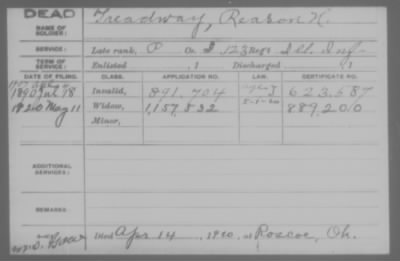 DEAD
NAME OF SOLDIER: Treadway, Reason N.
SERVICE: Late rank, P Co. I, 123 Reg't Ill. Inf.
TERM OF SERVICE: Enlisted , 1 Discharged , 1
DATE OF FILING. CLASS. APPLICATION NO. LAW. CERTIFICATE NO.
1890 Jul 18 Invalid, 891.704 623.687
1920 May 11 Widow, 1,157,832 5-1-20 889,200
Minor,
ADDITIONAL SERVICES:
REMARKS:
Died Apr 14, 1920, at Roscoe, Oh.